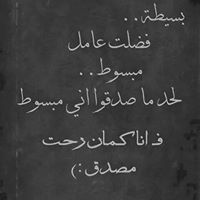 بسيطة . .
فضلت عامل
مبسوط . .
لحد ما صدقوا اني مبسوط
ف انا كمان رحت
مصدق :)